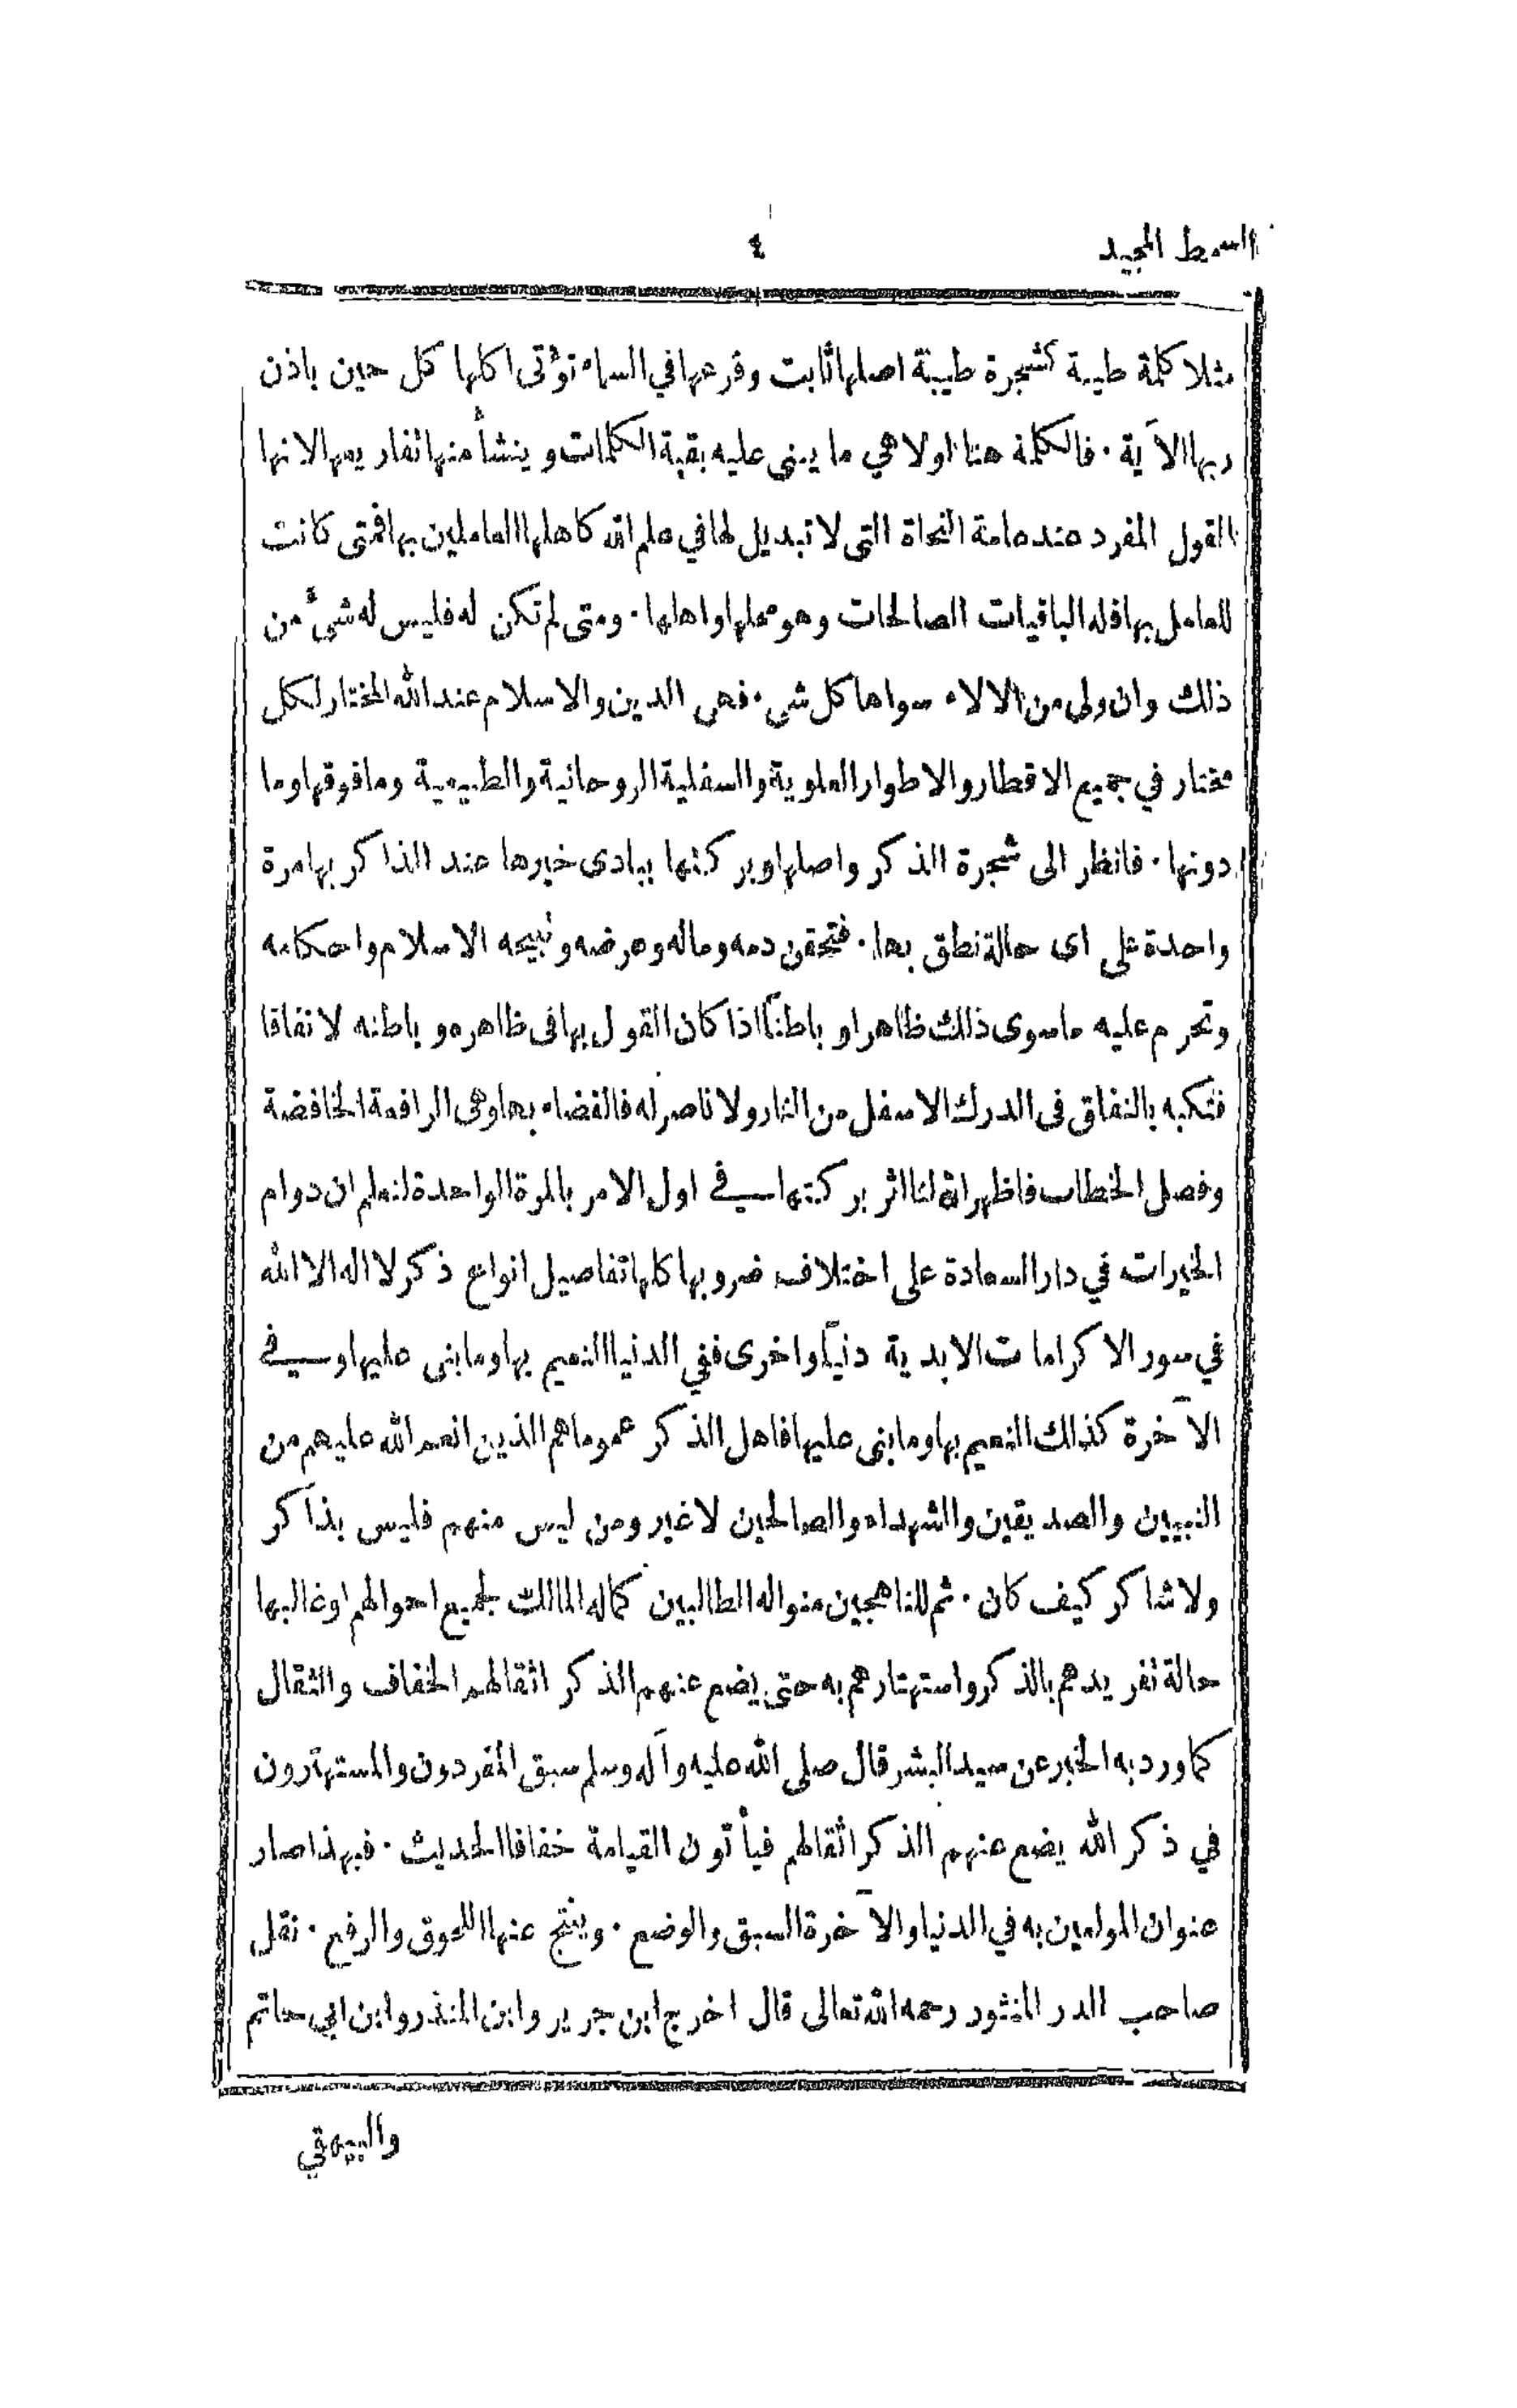 السمط المجيد
٤
مثلا كلمة طيبة كشجرة طيبة اصلها ثابت وفرعها في السماء تؤتى اكلها كل حين باذن
ربها الآية · فالكلمة هنا اولا هي ما يبنى عليه بقية الكلمات وينشأ منها تفاريعها لانها
القول المفرد عند عامة النحاة التى لا تبديل لها في علم الله كاهلها العاملين بها فمتى كانت
للعامل بها فله الباقيات الصالحات وهو محلها واهلها · ومتى لم تكن له فليس له شئ من
ذلك وان ولى من الالاء سواها كل شى · فهى الدين والاسلام عند الله المختار لكل
مختار في جميع الاقطار والاطوار العلوية والسفلية الروحانية والطبيعية وما فوقها وما
دونها · فانظر الى شجرة الذكر واصلها وبركتها ببادى خيرها عند الذاكر بها مرة
واحدة على اى حالة نطق بها · فتحقن دمه وماله وعرضه وتبيحه الاسلام واحكامه
وتحرم عليه ما سوى ذلك ظاهرا و باطنًا اذا كان القول بها فى ظاهره و باطنه لا نفاقا
فتكبه بالنفاق فى الدرك الاسفل من النار ولا ناصر له فالقضاء بها وهى الرافعة الخافضة
وفصل الخطاب فاظهر الله لنا اثر بركتها في اول الامر بالمرة الواحدة لنعلم ان دوام
الخيرات في دار السعادة على اختلاف ضروبها كلها تفاصيل انواع ذكر لا اله الا الله
في سور الاكرامات الابدية دنيًا واخرى ففي الدنيا النعيم بها وما بنى عليها وفي
الآخرة كذلك النعيم بها وما بنى عليها فاهل الذكر عموما هم الذين انعم الله عليهم من
النبيين والصديقين والشهداء والصالحين لا غير ومن ليس منهم فليس بذاكر
ولا شاكر كيف كان · ثم للناهجين منواله الطالبين كماله المالك لجميع احوالهم او غالبها
حالة تفريدهم بالذكر واستهتارهم به حتى يضع عنهم الذكر اثقالهم الخفاف والثقال
كما ورد به الخبر عن سيد البشر قال صلى الله عليه وآله وسلم سبق المفردون والمستهترون
في ذكر الله يضع عنهم الذكر اثقالهم فيأتون القيامة خفافا الحديث · فبهذا صار
عنوان المولعين به في الدنيا والآخرة السبق والوضع · وينتج عنها اللحوق والرفع · نقل
صاحب الدر المنثور رحمه الله تعالى قال اخرج ابن جرير وابن المنذر وابن ابي حاتم
والبيهقي